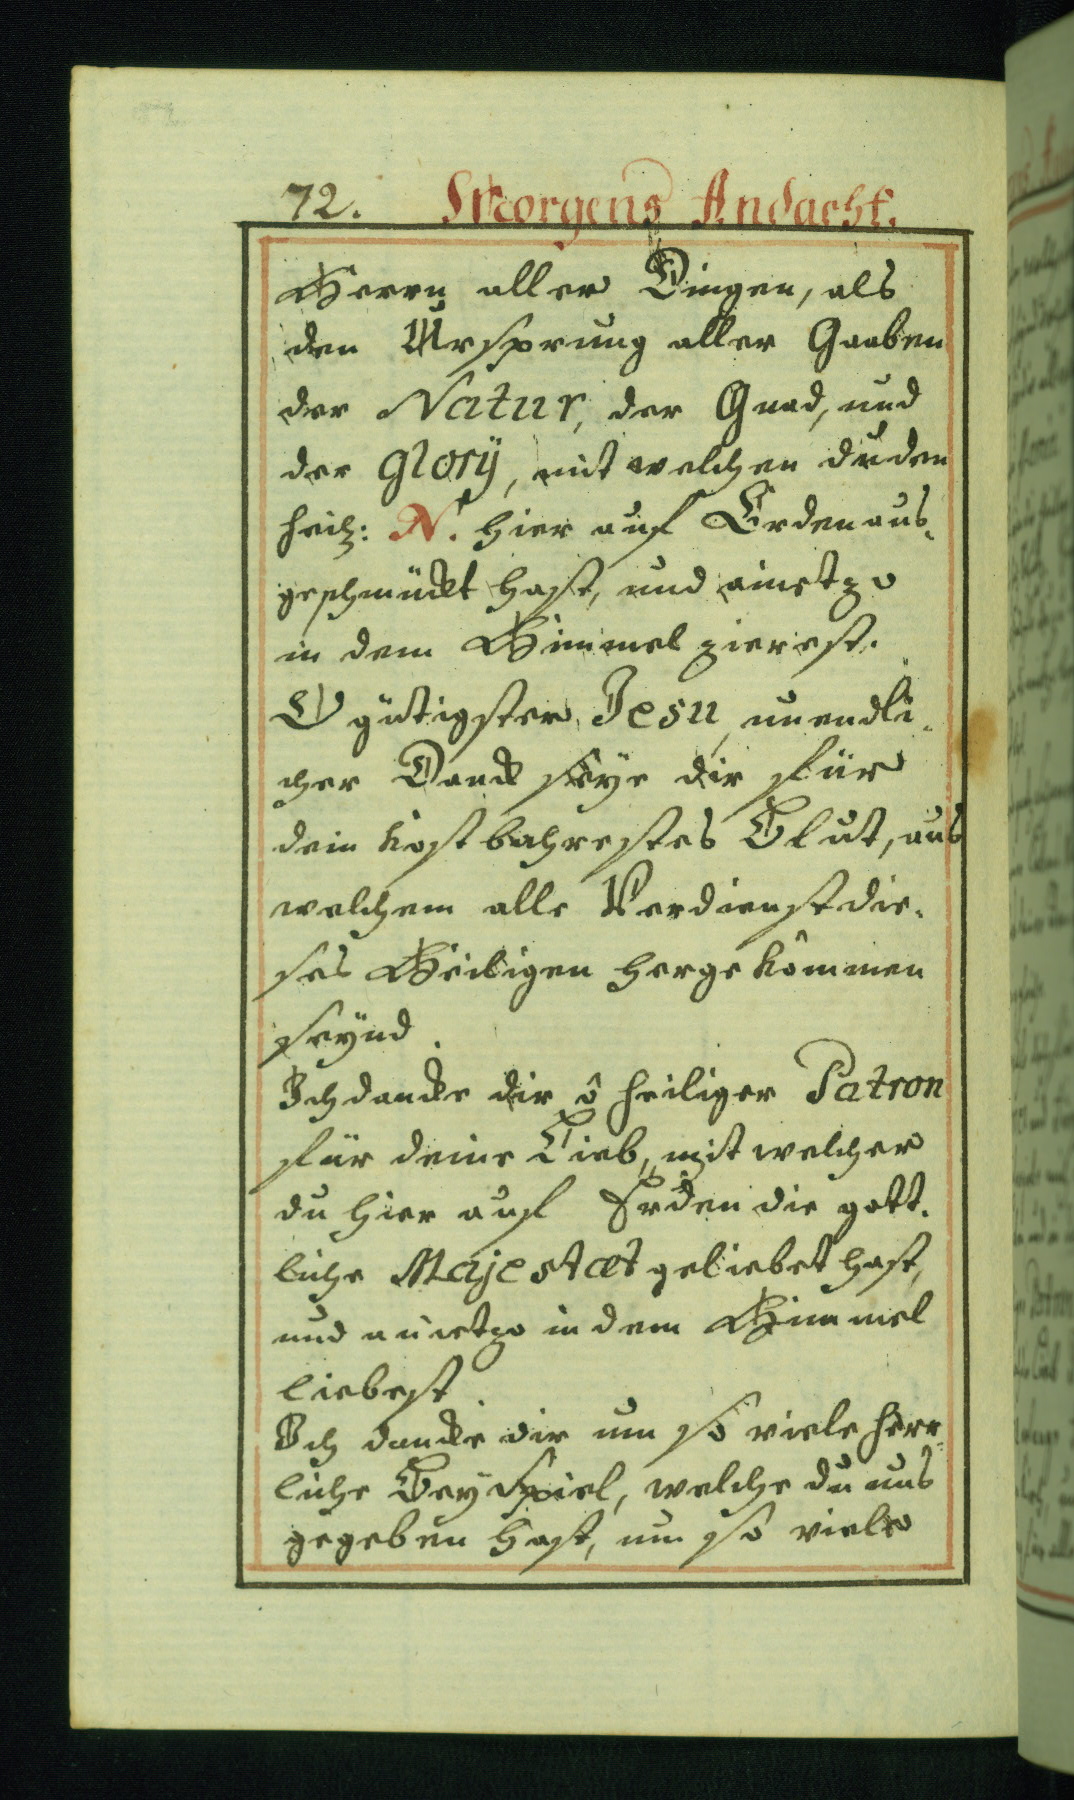 72. Morgens Andacht.
Herrn aller Dingen, als
den Ursprung aller Gaaben
der Natur, der Gnad, und
der Glorÿ, mit welchen du den
heil: N. hier auf Erden aus-
geschmückt hast, und anietzo
in dem Himmel zierest.
O gütigster Jesu, unendli-
cher Danck seÿe dir für
dein kostbahrestes Blut, aus
welchem alle Verdienst die-
ses Heiligen hergekommen
seÿnd.
Ich dancke dir ô heiliger Patron
für deine Lieb, mit welcher
du hier auf Erden die gött-
liche Majestæt geliebet hast,
und anietzo in dem Himmel
liebest.
Ich dancke dir um so viele herr-
liche Beÿspiel, welche du uns
gegeben hast, um so viele